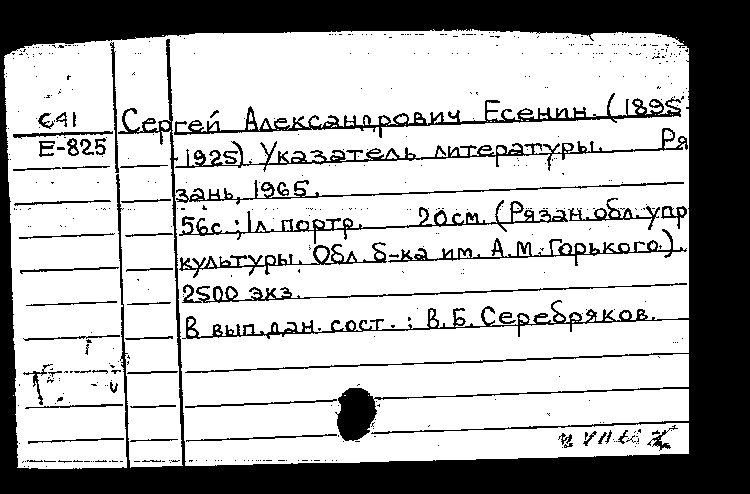 641
Е-825
Сергей Александрович Есенин. (1895-
-1925). Указатель литературы. Ря
зань, 1965.
56с.; 1л. портр. 20см. (Рязан. обл. упр
культуры. Обл. б-ка им. А.М. Горького).
2500 экз.
В вып. дан. сост.: В.Б. Серебряков.